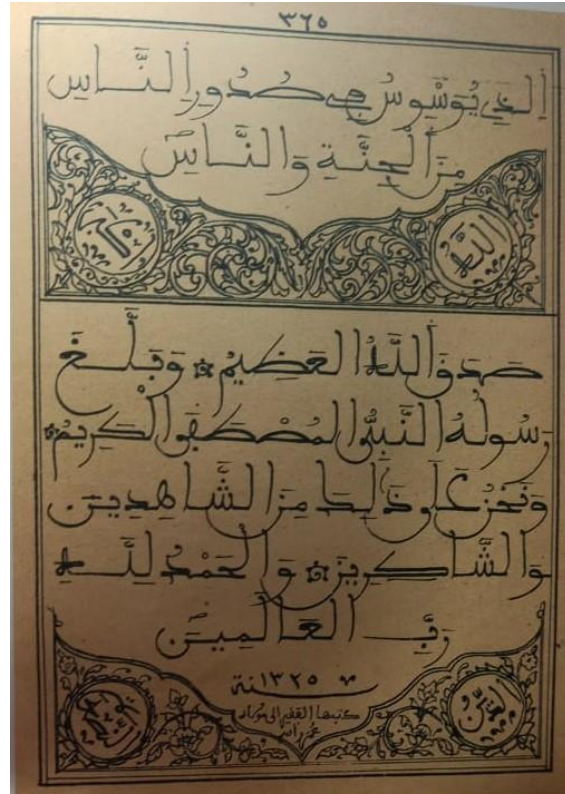 ٣٦٥
الَّذِي يُوَسْوِسُ فِي صُدُورِ النَّاسِ
مِنَ الْجِنَّةِ وَالنَّاسِ
الله
صَدَقَ اللَّهُ الْعَظِيمُ وَبَلَّغَ
رَسُولُهُ النَّبِيُّ الْمُصْطَفَى الْكَرِيمُ
وَنَحْنُ عَلَى ذَلِكَ مِنَ الشَّاهِدِينَ
وَالشَّاكِرِينَ وَالْحَمْدُ لِلَّهِ
رَبِّ الْعَالَمِينَ
سنة ١٣٢٥
كتبها الفقير إلى مولاه